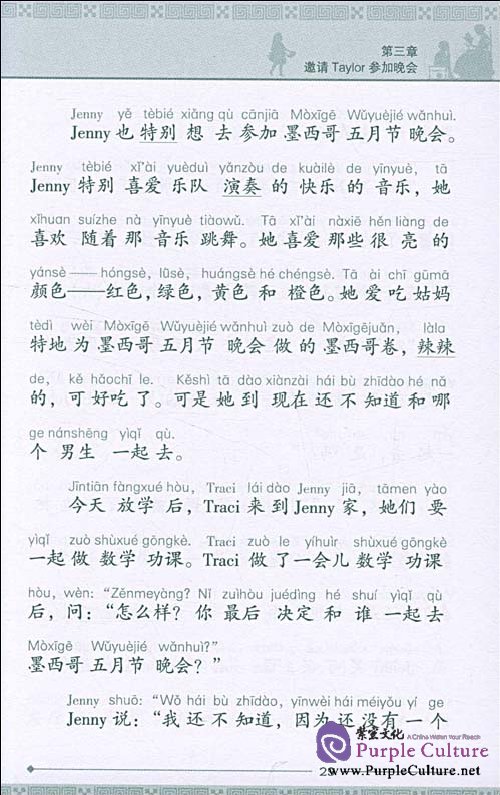 第三章
邀请 Taylor 参加晚会
Jenny yě tèbié xiǎng qù cānjiā Mòxīgē Wǔyuèjié wǎnhuì.
Jenny 也 特别 想 去 参加 墨西哥 五月节 晚会。
Jenny tèbié xǐ'ài yuèduì yǎnzòu de kuàilè de yīnyuè, tā
Jenny 特别 喜爱 乐队 演奏 的 快乐 的 音乐，她
xǐhuan suízhe nà yīnyuè tiàowǔ. Tā xǐ'ài nàxiē hěn liàng de
喜欢 随着 那 音乐 跳舞。她 喜爱 那些 很 亮 的
yánsè —— hóngsè, lǜsè, huángsè hé chéngsè. Tā ài chī gūmā
颜色——红色，绿色，黄色 和 橙色。她 爱 吃 姑妈
tèdì wèi Mòxīgē Wǔyuèjié wǎnhuì zuò de Mòxīgējuǎn, làla
特地 为 墨西哥 五月节 晚会 做 的 墨西哥卷，辣辣
de, kě hǎochī le. Kěshì tā dào xiànzài hái bù zhīdào hé nǎ
的，可 好吃 了。可是 她 到 现在 还 不 知道 和 哪
ge nánshēng yìqǐ qù.
个 男生 一起 去。
Jīntiān fàngxué hòu, Traci lái dào Jenny jiā, tāmen yào
今天 放学 后，Traci 来 到 Jenny 家，她们 要
yìqǐ zuò shùxué gōngkè. Traci zuò le yíhuìr shùxué gōngkè
一起 做 数学 功课。Traci 做 了 一会儿 数学 功课
hòu, wèn: “Zěnmeyàng? Nǐ zuìhòu juédìng hé shuí yìqǐ qù
后，问：“怎么样？你 最后 决定 和 谁 一起 去
Mòxīgē Wǔyuèjié wǎnhuì?”
墨西哥 五月节 晚会？”
Jenny shuō: “Wǒ hái bù zhīdào, yīnwèi hái méiyǒu yí ge
Jenny 说：“我 还 不 知道，因为 还 没有 一 个
紫宣文化 A China Within Your Reach
Purple Culture
www.PurpleCulture.net